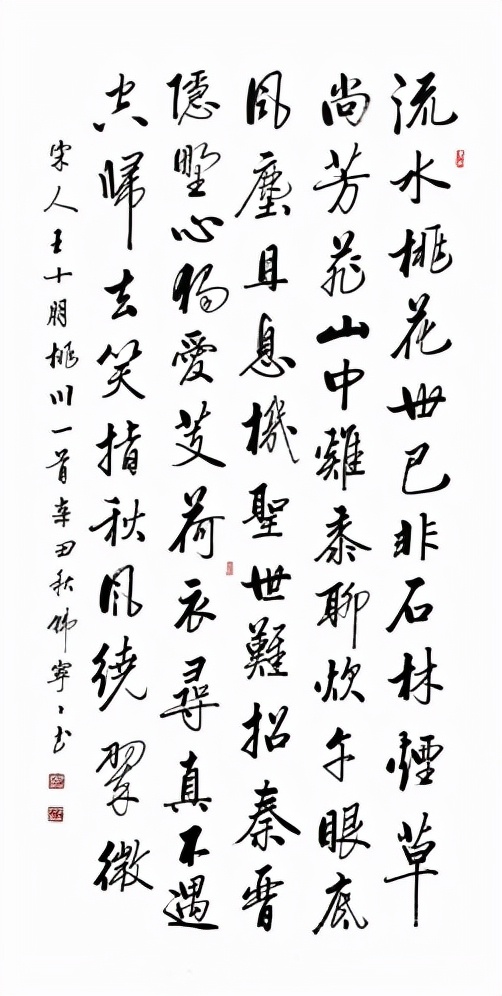 流水桃花世已非石林煙草
尚芳菲山中雞黍聊炊午眼底
風塵且息機聖世難招秦晉
隱野心獨愛芰荷衣尋真不遇
空歸去笑指秋風繞翠微
宋人王十朋桃川一首辛丑秋韩寧〻书